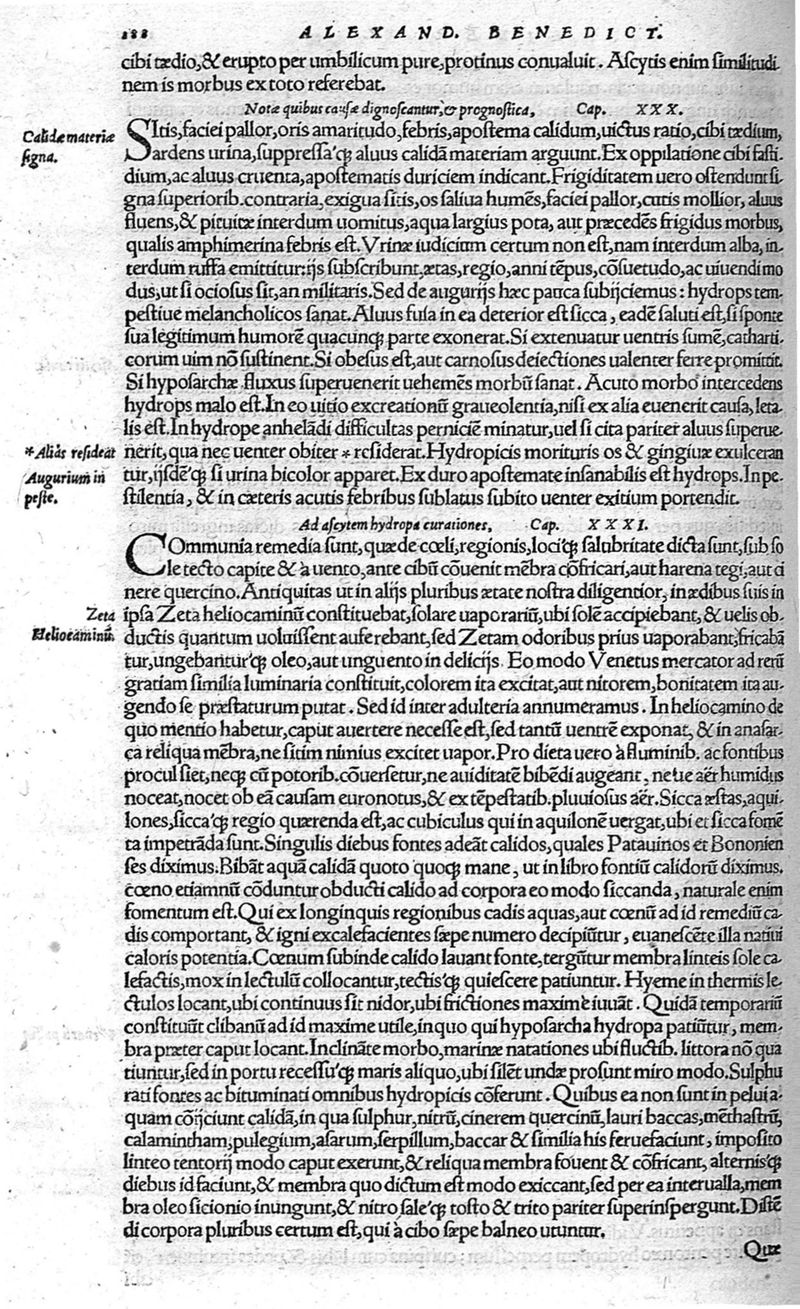 188 ALEXAND. BENEDICT.
cibi tædio,& erupto per umbilicum pure,protinus conualuit. Ascytis enim similitudi
nem is morbus ex toto referebat.
Notæ quibus causæ dignoscantur,& prognostica, Cap. XXX.
Calidæ materiæ
signa.
SItis,faciei pallor,oris amaritudo,febris,apostema calidum,uictus ratio,cibi tædium,
ardens urina,suppressaq́; aluus calidã materiam arguunt.Ex oppilatione cibi fasti
dium,ac aluus cruenta,apostematis duriciem indicant.Frigiditatem uero ostendunt si
gna superiorib.contraria,exigua sitis,os saliua humẽs,faciei pallor,cutis mollior, aluus
fluens,& pituitæ interdum uomitus,aqua largius pota, aut præcedẽs frigidus morbus,
qualis amphimerina febris est.Vrinæ iudicium certum non est,nam interdum alba,in-
terdum ruffa emittitur:ijs subscribunt,ætas,regio,anni tẽpus,cõsuetudo,ac uiuendi mo
dus,ut si ociosus sit,an militaris.Sed de augurijs hæc pauca subijciemus: hydrops tem-
pestiue melancholicos sanat.Aluus fusa in ea deterior est sicca, eadẽ saluti est,si sponte
sua legitimum humorẽ quacunq; parte exonerat.Si extenuatur uentris sumẽ,catharti-
corum uim nõ sustinent.Si obesus est,aut carnosus deiectiones ualenter ferre promittit.
Si hyposarchæ fluxus superuenerit uehemẽs morbũ sanat. Acuto morbo intercedens
hydrops malo est.In eo uitio excreationũ graueolentia,nisi ex alia euenerit causa,leta-
lis est.In hydrope anhelãdi difficultas perniciẽ minatur,uel si cita pariter aluus superue-
*Aliàs resideat
nerit,qua nec uenter obiter * residerat.Hydropicis morituris os & gingiuæ exulceran
Augurium in
peste.
tur,ijsdẽq́; si urina bicolor apparet.Ex duro apostemate insanabilis est hydrops.In pe-
stilentia, & in cæteris acutis febribus sublatus subito uenter exitium portendit.
Ad ascytem hydropa curationes, Cap. XXXI.
COmmunia remedia sunt,quæ de cœli,regionis,lociq́; salubritate dicta sunt,sub so
le tecto capite & à uento,ante cibũ cõuenit mẽbra cõfricari,aut harena tegi,aut ci
nere quercino.Antiquitas ut in alijs pluribus ætate nostra diligentior, in ædibus suis in
Zeta
Heliocaminũ.
ipsa Zeta heliocaminũ constituebat,solare uaporariũ,ubi solẽ accipiebant,& uelis ob-
ductis quantum uoluissent auferebant,sed Zetam odoribus prius uaporabant;fricabã
tur,ungebanturq́; oleo,aut unguento in delicijs. Eo modo Venetus mercator ad rerũ
gratiam similia luminaria constituit,colorem ita excitat,aut nitorem,bonitatem ita au-
gendo se præstaturum putat. Sed id inter adulteria annumeramus. In heliocamino de
quo mentio habetur,caput auertere necesse est,sed tantũ uentrẽ exponat, & in anasar-
ca reliqua mẽbra,ne sitim nimius excitet uapor.Pro dieta uero à fluminib. ac fontibus
procul siet,neq; cũ potorib.cõuersetur,ne auiditatẽ bibẽdi augeant, neue aẽr humidus
noceat,nocet ob eã causam euronotus,& ex tẽpestatib.pluuiosus aẽr.Sicca æstas,aqui-
lones,siccaq́; regio quærenda est,ac cubiculus qui in aquilonẽ uergat,ubi et sicca fomẽ
ta impetrãda sunt.Singulis diebus fontes adeãt calidos,quales Patauinos et Bononien
ses diximus.Bibãt aquã calidã quoto quoq; mane, ut in libro fontiũ calidorũ diximus.
cœno etiamnũ cõduntur obducti calido ad corpora eo modo siccanda, naturale enim
fomentum est.Qui ex longinquis regionibus cadis aquas,aut cœnũ ad id remediũ ca-
dis comportant, & igni excalefacientes sæpe numero decipiũtur, euanescẽte illa natiui
caloris potentia.Cœnum subinde calido lauant fonte,tergũtur membra linteis sole ca-
lefactis,mox in lectulũ collocantur,tectisq́; quiescere patiuntur. Hyeme in thermis le-
ctulos locant,ubi continuus sit nidor,ubi frictiones maxime iuuãt. Quidã temporariũ
constituũt clibanũ ad id maxime utile,in quo qui hyposarcha hydropa patiũtur, mem-
bra præter caput locant.Inclinãte morbo,marinæ natationes ubi fluctib. littora nõ qua
tiuntur,sed in portu recessuq́; maris aliquo,ubi silẽt undæ prosunt miro modo.Sulphu
rati fontes ac bituminati omnibus hydropicis cõferunt. Quibus ea non sunt in pelui a-
quam cõijciunt calidã,in qua sulphur,nitrũ,cinerem quercinũ,lauri baccas,mẽthastrũ,
calamintham,pulegium,asarum,serpillum,baccar & similia his feruefaciunt, imposito
linteo tentorij modo caput exerunt,& reliqua membra fouent & cõfricant, alternisq́;
diebus id faciunt,& membra quo dictum est modo exiccant,sed per ea interualla,mem
bra oleo sicionio inungunt,& nitro saleq́; tosto & trito pariter superinspergunt.Distẽ
di corpora pluribus certum est,qui à cibo sæpe balneo utuntur.
Quæ